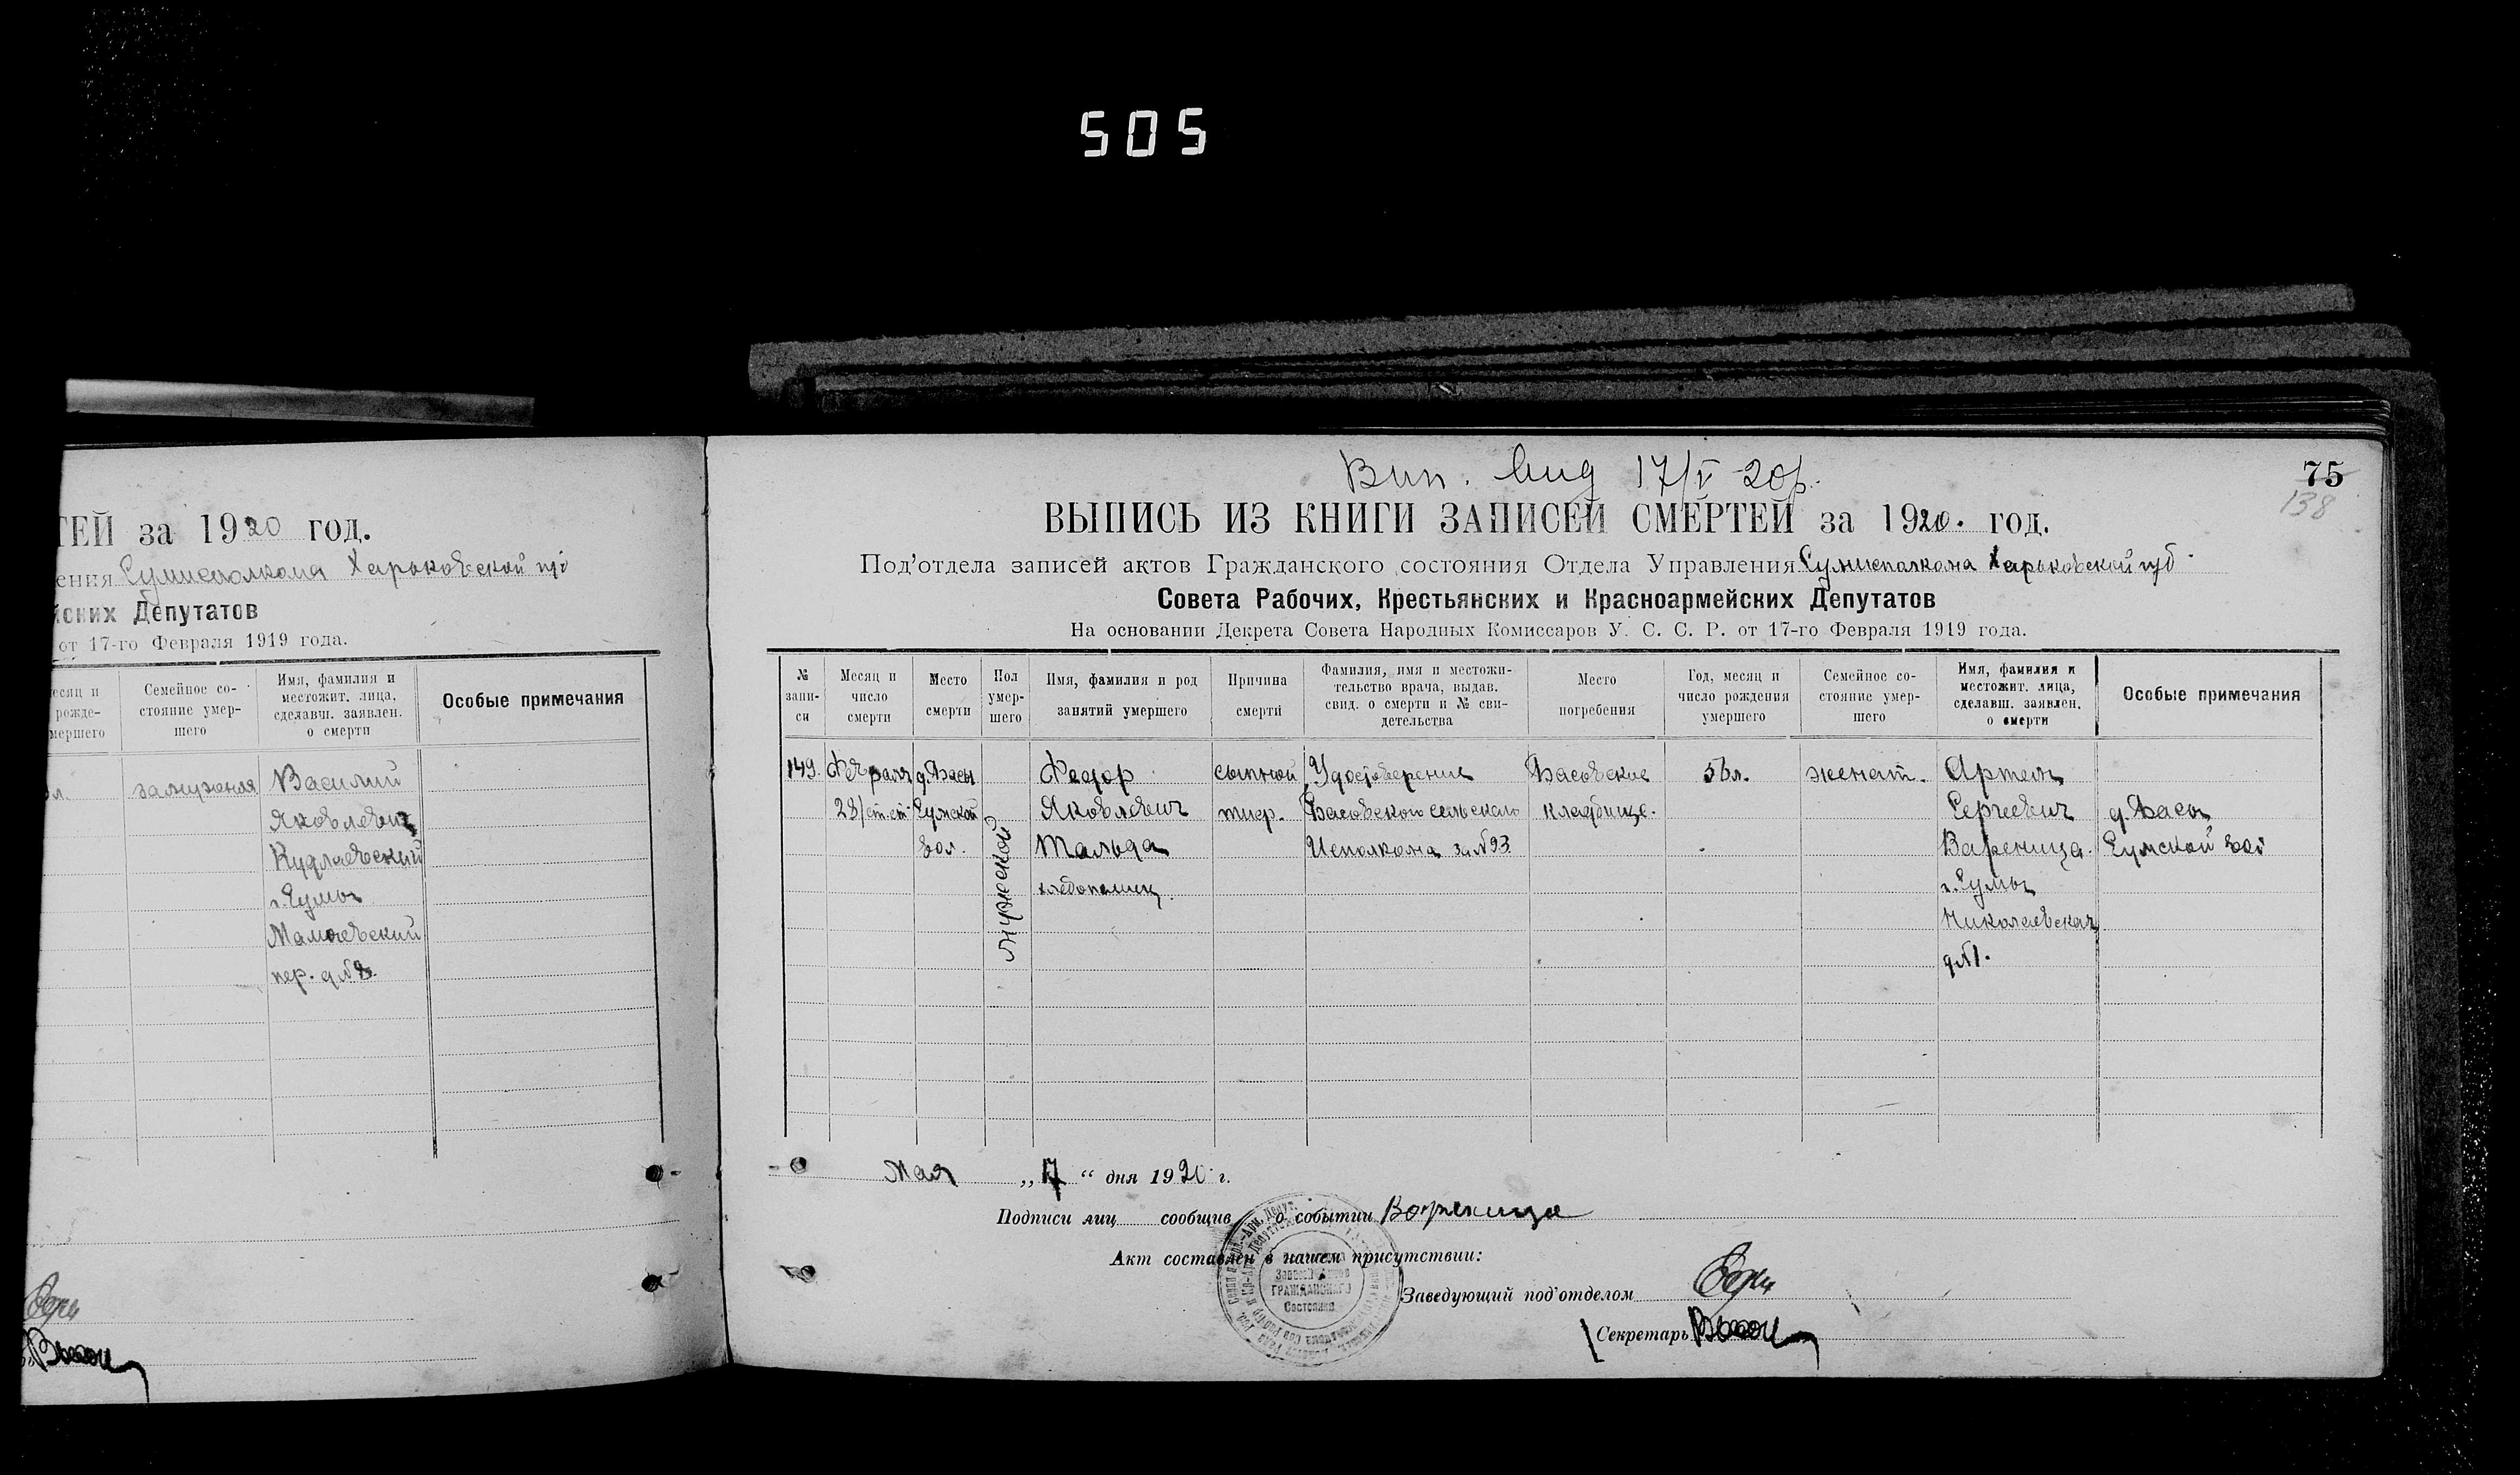 505
ТЕЙ за 1920 год.
ения Сумисполкома Харьковской губ
йских Депутатов
от 17-го Февраля 1919 года.
есяц и
рожде-
мершего
Семейное со-
стояние умер-
шего
Имя, фамилия и
местожит. лица,
сделавш. заявлен.
о смерти
Особые примечания
л.
замужняя
Василий
Яковлевич
Кудлаевский
г. Сумы
Мамаевский
пер. д №
17/V 20р.
75
138
ВЫПИСЬ ИЗ КНИГИ ЗАПИСЕЙ СМЕРТЕЙ за 1920. год.
Под'отдела записей актов Гражданского состояния Отдела Управления Сумисполкома Харьковской губ.
Совета Рабочих, Крестьянских и Красноармейских Депутатов
На основании Декрета Совета Народных Комиссаров У. С. С. Р. от 17-го Февраля 1919 года.
№
запи-
си
Месяц и
число
смерти
Место
смерти
Пол
умер-
шего
Имя, фамилия и род
занятий умершего
Причина
смерти
Фамилия, имя и местожи-
тельство врача, выдав.
свид. о смерти и № сви-
детельства
Место
погребения
Год, месяц и
число рождения
умершего
Семейное со-
стояние умер-
шего
Имя, фамилия и
местожит. лица,
сделавш. заявлен.
о смерти
Особые примечания
149.
Февраля
28/ст.ст.
д. Басы
Сумской
вол.
мужеской
Федор
Яковлевич
Мальда
хлебопашец.
сыпной
тиф.
Удостоверение
Басовского сельского
Исполкома за №93.
Басовское
кладбище.
56л.
женат.
Артем
Сергеевич
Вареница.
г. Сумы
Николаевская
д №1.
д. Басы
Сумской вол
Мая „17“ дня 1920 г.
Подписи лиц сообщив о событии Вареница
Акт составлен в нашем присутствии:
Заведующий под'отделом
Секретарь
ГРАЖДАНСКОГО
Состояния